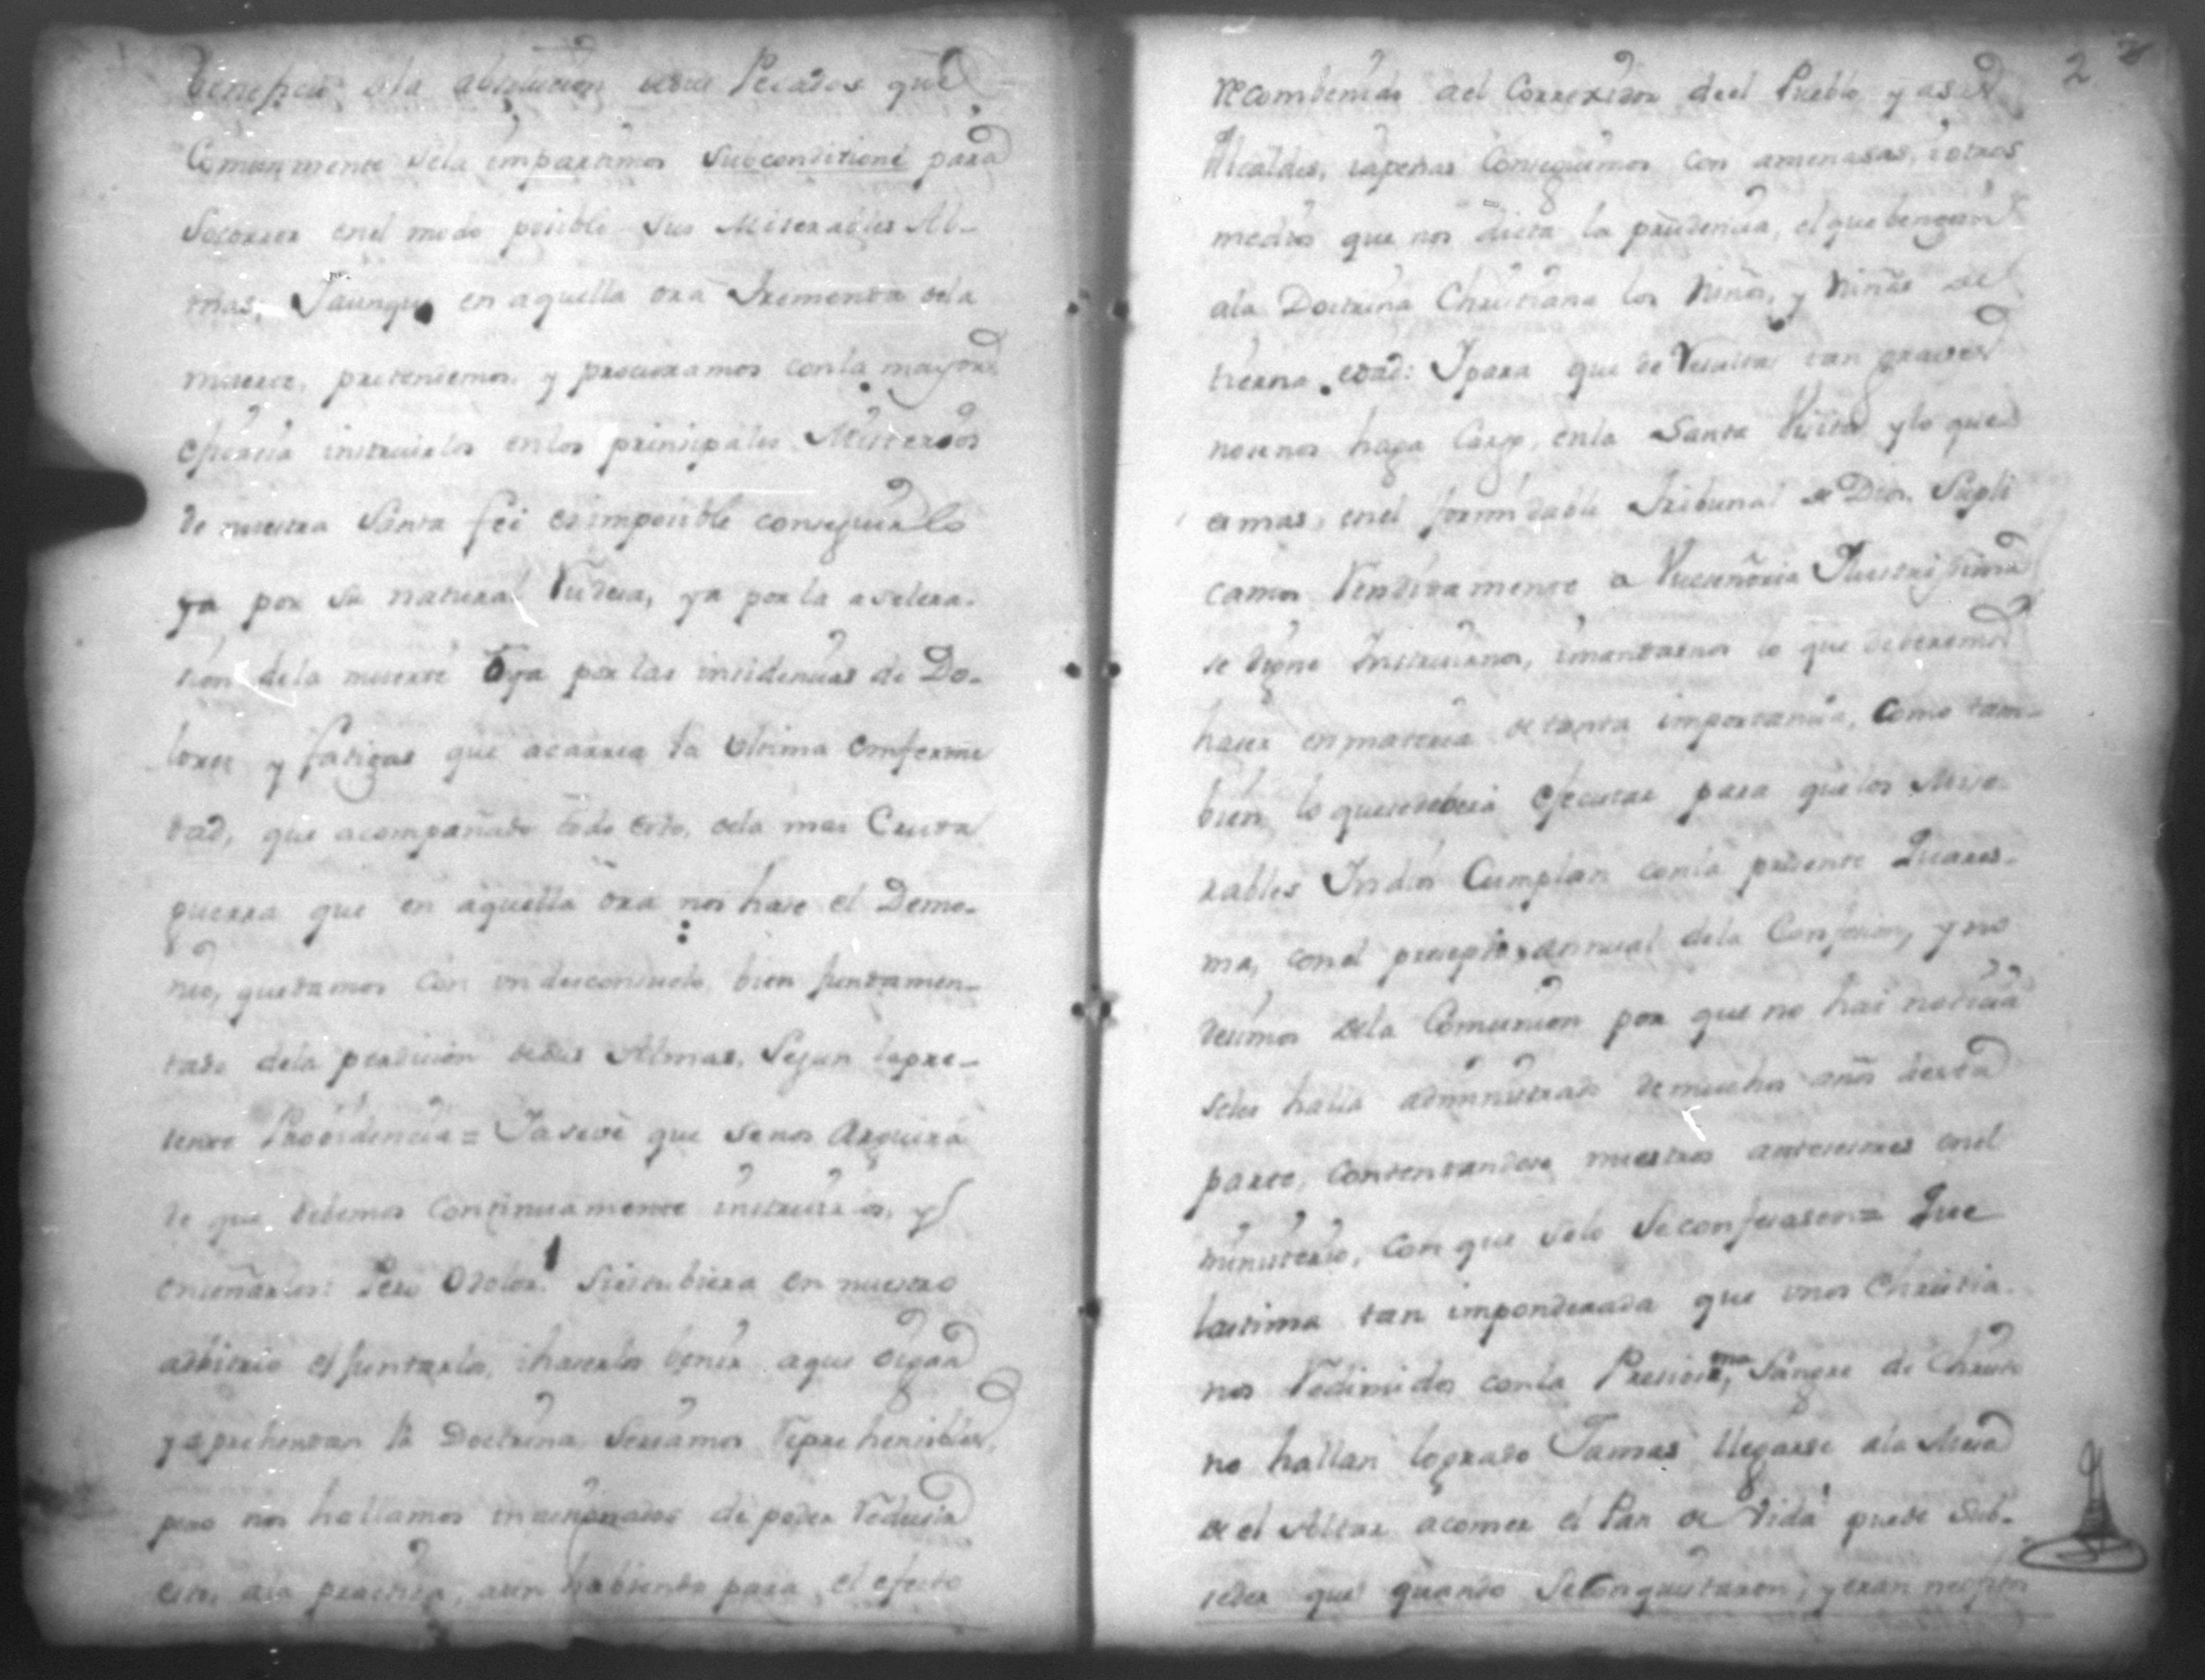 beneficio dela absolucion desus Pecados que
Comunmente sela impartimos subconditione para
Socorrer enel modo posible sus Miserables Al-
mas; Iaunque en aquella ora tremenda dela
muerte, pretendemos y procuramos conla mayor
eficacia instruirlos enlos prinsipales Misterios
de nuestra Santa feé es imposible conseguirlo
ya por su natural Rudesa, ya por la aselera-
sion dela muerte ō ya por las insidencias de Do-
lores y fatigas que acarrea la ultima enferme
dad, que acompañado todo esto, dela mas Cruda
guerra que en aquella ora nos hase el Demo-
nio, quedamos con un desconsuelo, bien fundamen-
tado dela perdicion desus Almas, Segun lapre-
sente Providencia = Ia sevé que senos Arguirá
de que debemos continuamente instruirlos, y
enseñarlos: Pero O dolor! Siestubiera en nuestro
arbitrio el juntarlos, ihaserlos benir aque oigan
yaprehendan la Doctrina, Seriamos Reprehensibles,
pero nos hallamos de poder Reducir
esto, ala practica, aun habiendo para el efecto
2
recombenido ael Correxidor deel Pueblo yasus
Alcaldes, iapenas Conseguimos con amenasas, iotros
medios que nos dicta la prudencia, el que bengan
ala Doctrina Christiana los Niños, y Niñas de
tierna edad: Ipara que de Resultas tan graves
nosenos haga Cargo, enla Santa Visita ylo que
es mas, enel formidable Tribunal de Dios. Supli
camos Rendidamente a Vuseñoria Ilustrissima
se digne Instruirnos, imandarnos lo que deberemos
haser enmateria de tanta importancia, Como tam-
bien lo quesedeberá efecutar para quelos Mise-
rables Indios Cumplan conla presente Quares-
ma, conel presepto annual dela Confesion, y no
desimos dela Comunion por que no hai noticia
seles halla administrado demuchos años áesta
parte, Contentandose nuestros antesesores enel
ministerio, con que solo Seconfesasen = Que
lastima tan imponderada que unos Christia-
nos Redimidos conla Presiosisma Sangre de Christo
no hallan logrado Jamas llegarse ala Mesa
de el Altar acomer el Pan de Vida puede sub-
seder que quando SeConquistaron, yeran neofitos